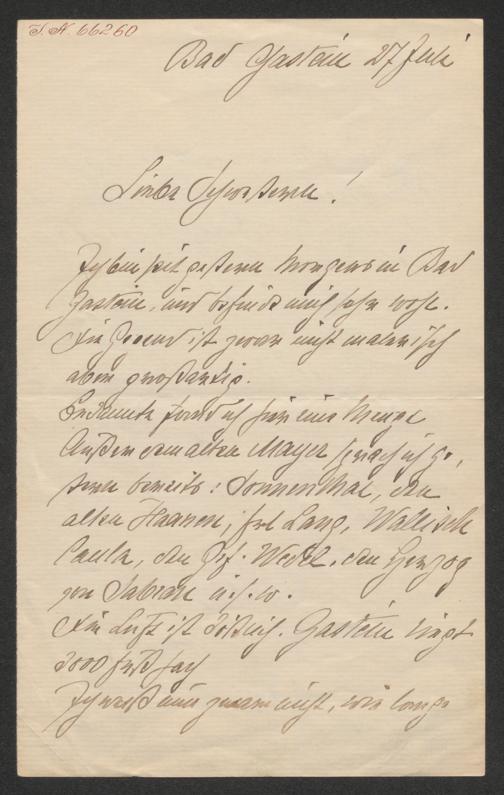 I. N. 66260
Bad Gastein 27 Juli
Liebe Schwestern!
Ich bin seit gestern Morgens in Bad
Gastein, und befinde mich sehr wohl.
Die Gegend ist zwar nicht malerisch
aber großartig.
Bekannte fand ich hier eine Menge
Außer dem alten Mayer sprach ich ge,
stern bereits: Sonnenthal, den
alten Haanen, Frl Lang, Wallisch
Paula, den Gf. Wedel, den Herzog
von Sabran u. s. w.
Die Luft ist köstlich. Gastein liegt
3000 Fuß hoch
Ich weiß nun zwar nicht, wie lange